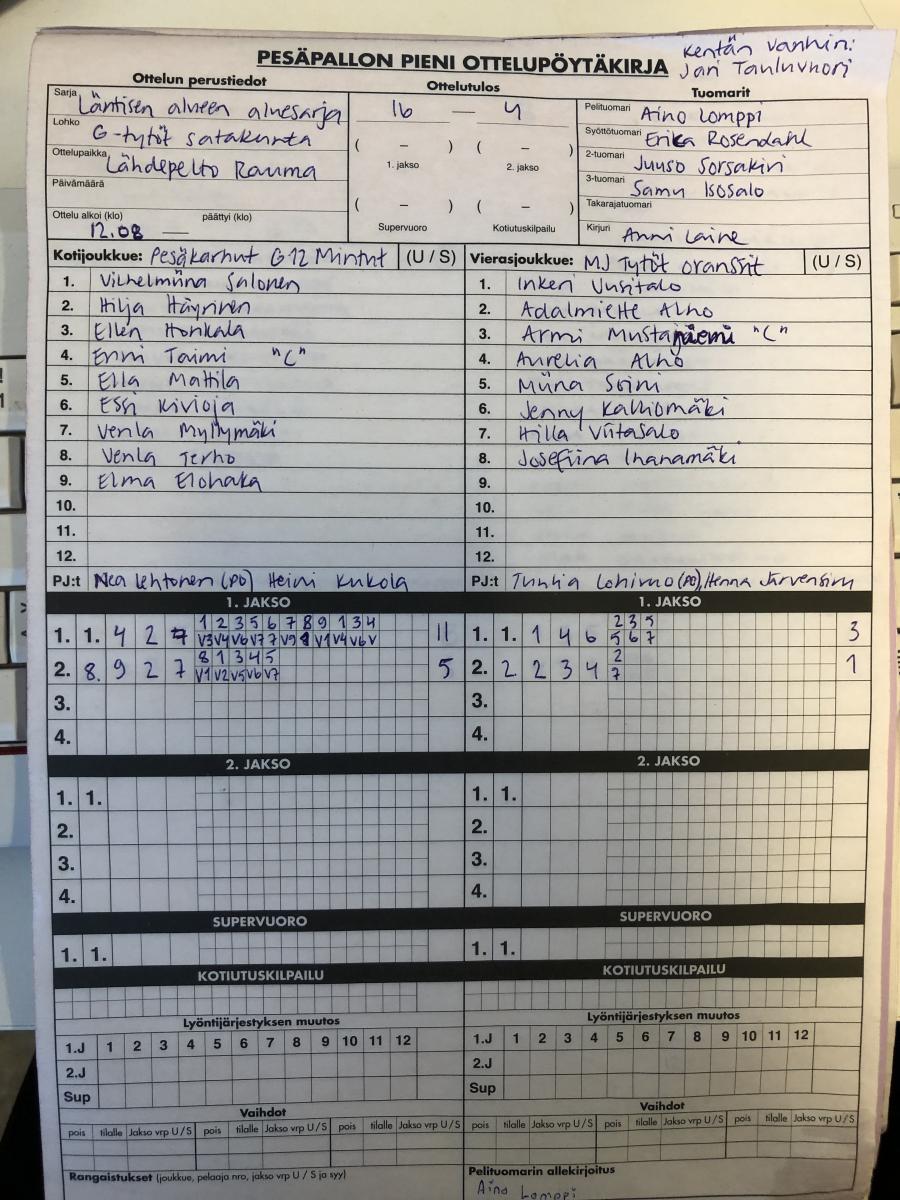 Kentän vanhin:
Jari Tauluvuori
PESÄPALLON PIENI OTTELUPÖYTÄKIRJA
Ottelun perustiedot
Sarja Läntisen alueen aluesarja
Lohko G-tytöt satakunta
Ottelupaikka Lähdepelto Rauma
Päivämäärä
Ottelu alkoi (klo) päättyi (klo)
12.08 —
Ottelutulos
16 — 4
( – ) ( – )
1. jakso 2. jakso
( – ) ( – )
Supervuoro Kotiutuskilpailu
Tuomarit
Pelituomari Aino Lomppi
Syöttötuomari Erika Rosendahl
2-tuomari Juuso Sorsakivi
3-tuomari Samu Isosalo
Takarajatuomari
Kirjuri Anni Laine
Kotijoukkue: Pesäkarhut G12 Mintut (U / S)
1. Vilhelmiina Salonen
2. Hilja Häyrinen
3. Ellen Honkala
4. Enni Taimi "C"
5. Ella Mattila
6. Essi Kivioja
7. Venla Myllymäki
8. Venla Terho
9. Elma Elohaka
10.
11.
12.
PJ:t Nea Lehtonen (PO) Heini Kukola
Vierasjoukkue: MJ Tytöt oranssit (U / S)
1. Inkeri Uusitalo
2. Adalmiette Alho
3. Armi Mustaniemi "C"
4. Aurelia Alho
5. Miina Soini
6. Jenny Kalliomäki
7. Hilla Viitasalo
8. Josefiina Ihanamäki
9.
10.
11.
12.
PJ:t Tuulia Lohimo (PO), Henna Järvensivu
1. JAKSO
1. 1. 4 2 7 1 2 3 5 6 7 8 9 1 3 4 11
V3 V4 V6 V7 7 V9 V1 V4 V6 V
2. 8. 9 2 7 8 1 3 4 5 5
V1 V2 V5 V6 V7
3.
4.
1. JAKSO
1. 1. 1 4 6 2 3 5 3
5 6 7
2. 2 2 3 4 2 1
7
3.
4.
2. JAKSO
1. 1.
2.
3.
4.
2. JAKSO
1. 1.
2.
3.
4.
SUPERVUORO
1. 1.
SUPERVUORO
1. 1.
KOTIUTUSKILPAILU
KOTIUTUSKILPAILU
Lyöntijärjestyksen muutos
1.J 1 2 3 4 5 6 7 8 9 10 11 12
2.J
Sup
Lyöntijärjestyksen muutos
1.J 1 2 3 4 5 6 7 8 9 10 11 12
2.J
Sup
Vaihdot
pois tilalle Jakso vrp U / S pois tilalle Jakso vrp U / S pois tilalle Jakso vrp U / S
Vaihdot
pois tilalle Jakso vrp U / S pois tilalle Jakso vrp U / S pois tilalle Jakso vrp U / S
Rangaistukset (joukkue, pelaaja nro, jakso vrp U / S ja syy)
Pelituomarin allekirjoitus
Aino Lomppi